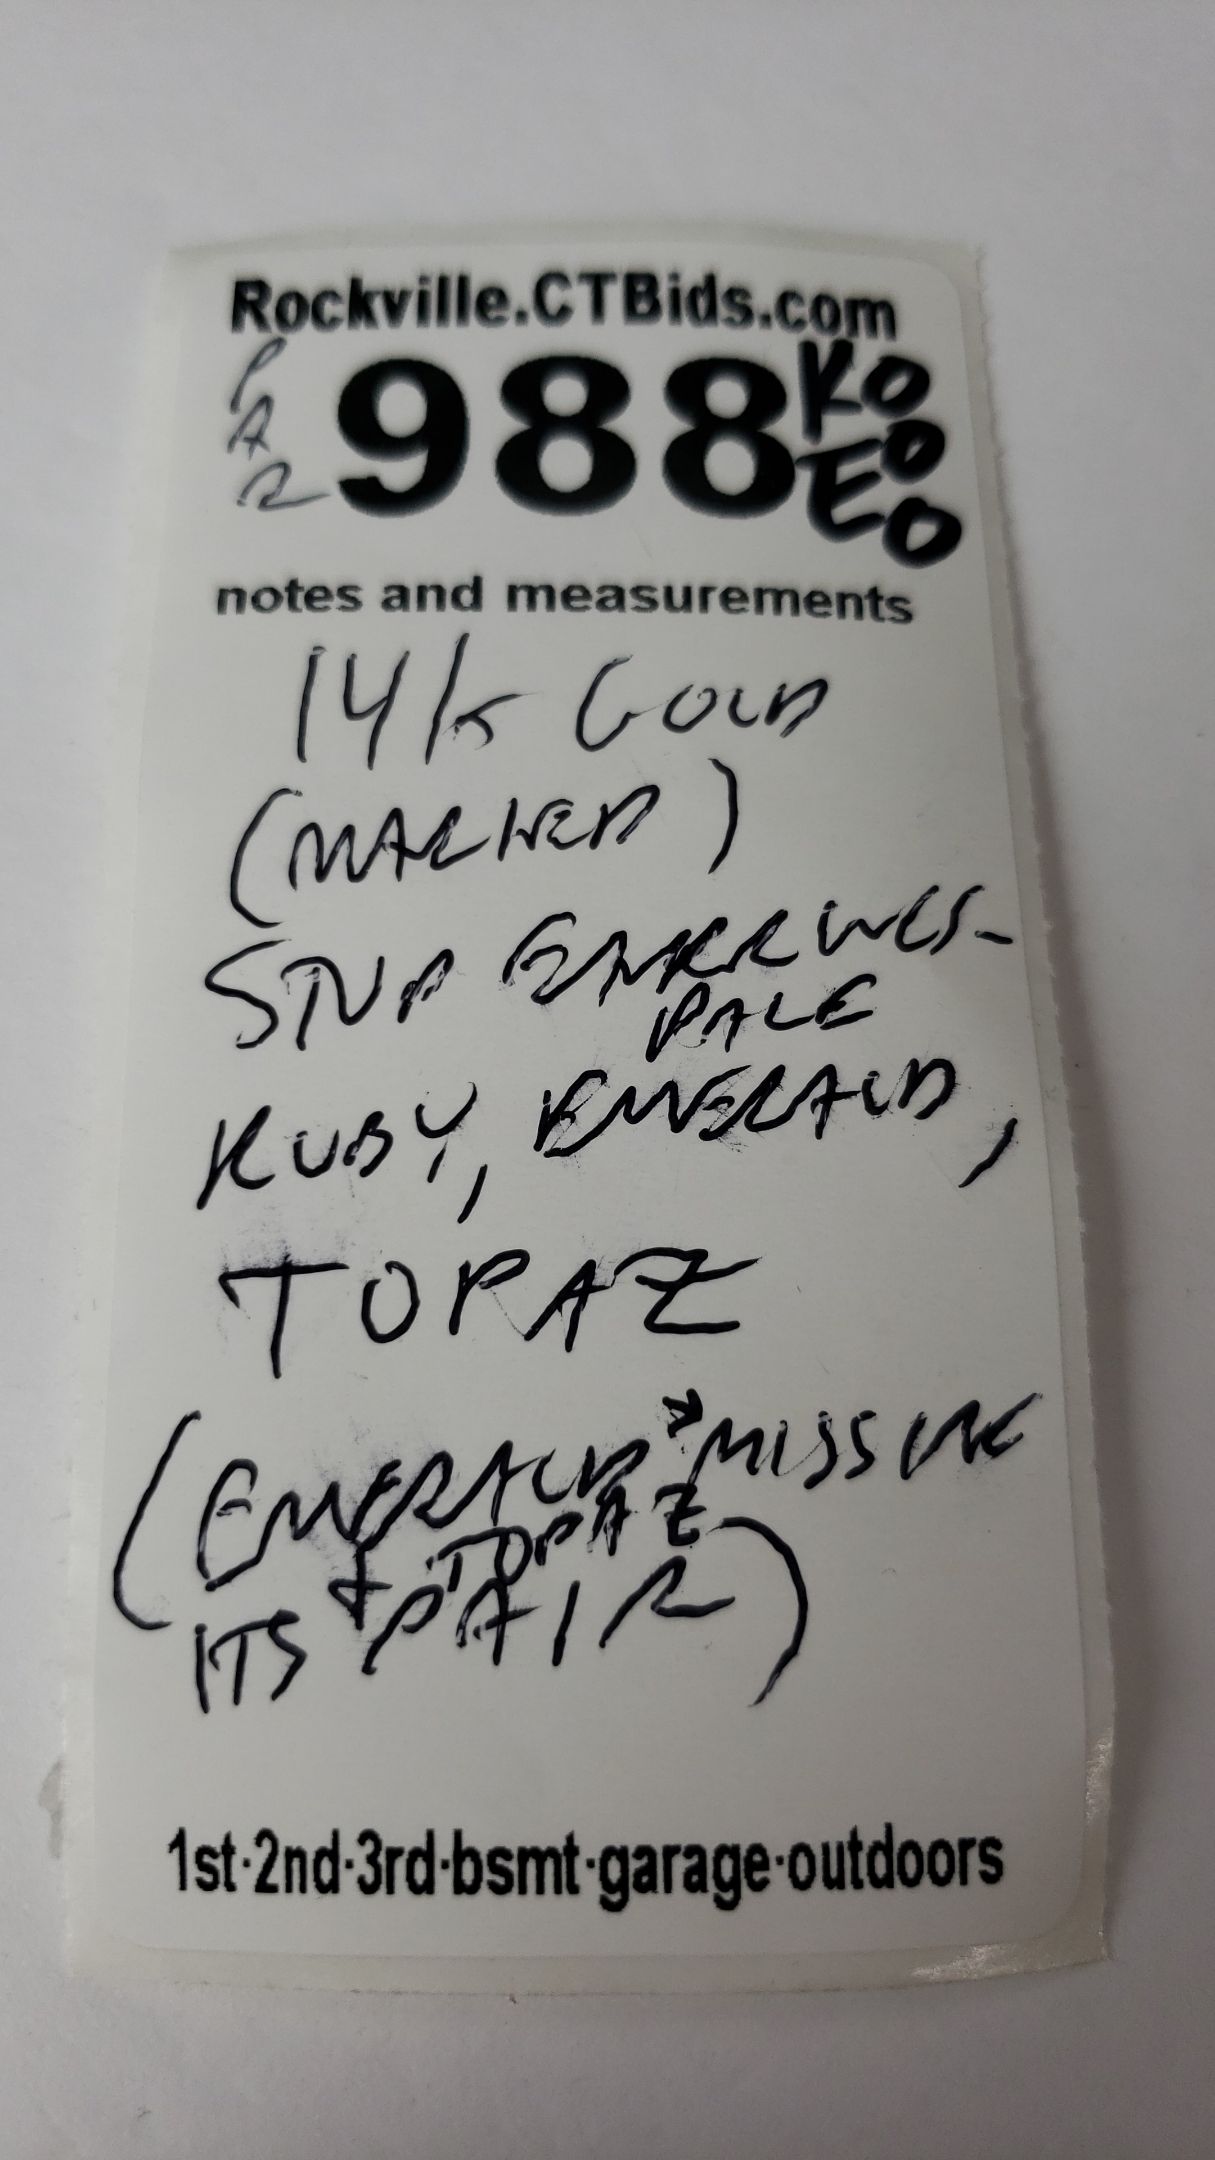 Rockville.CTBids.com
PAR 988 KO
EO
O
notes and measurements
14K GOLD
(MARKED)
STUD EARRINGS-
PALE
RUBY, EMERALD,
TOPAZ
(EMERALD → MISSING
& TOPAZ
ITS PAIR)
1st·2nd·3rd·bsmt·garage·outdoors